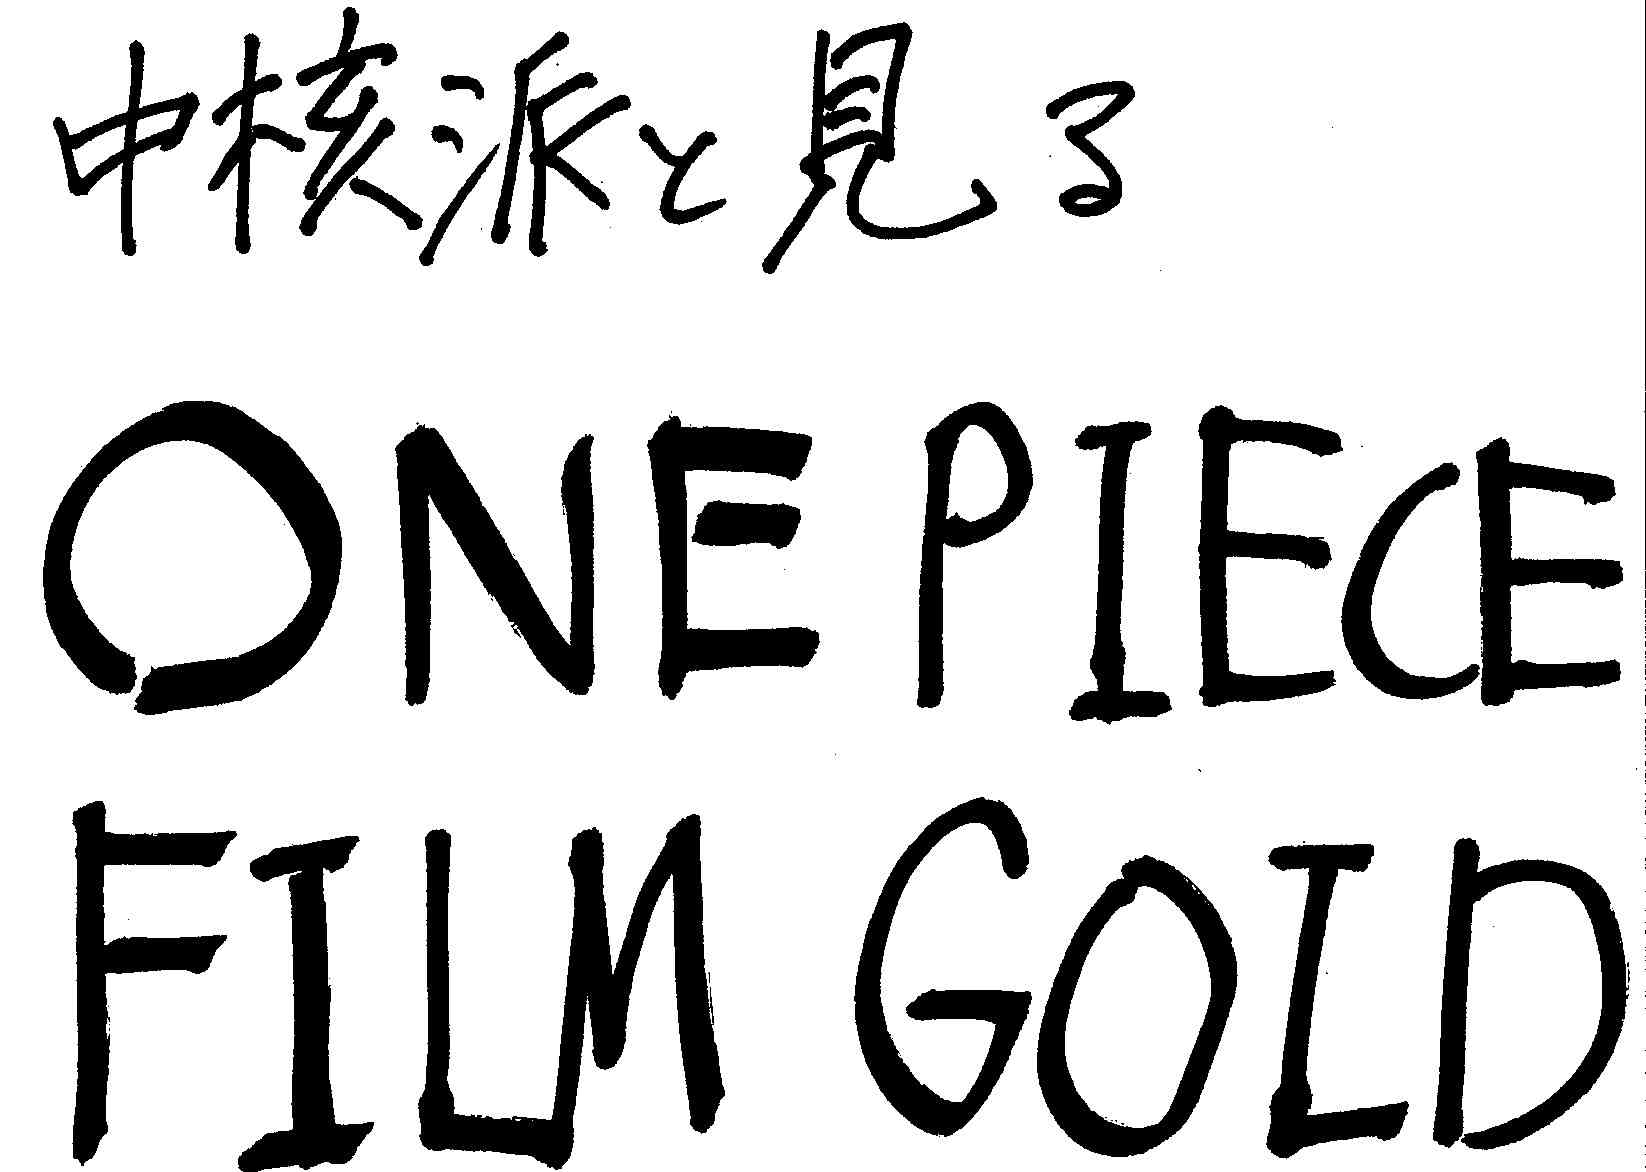 中核派と見る
ONE PIECE
FILM GOLD